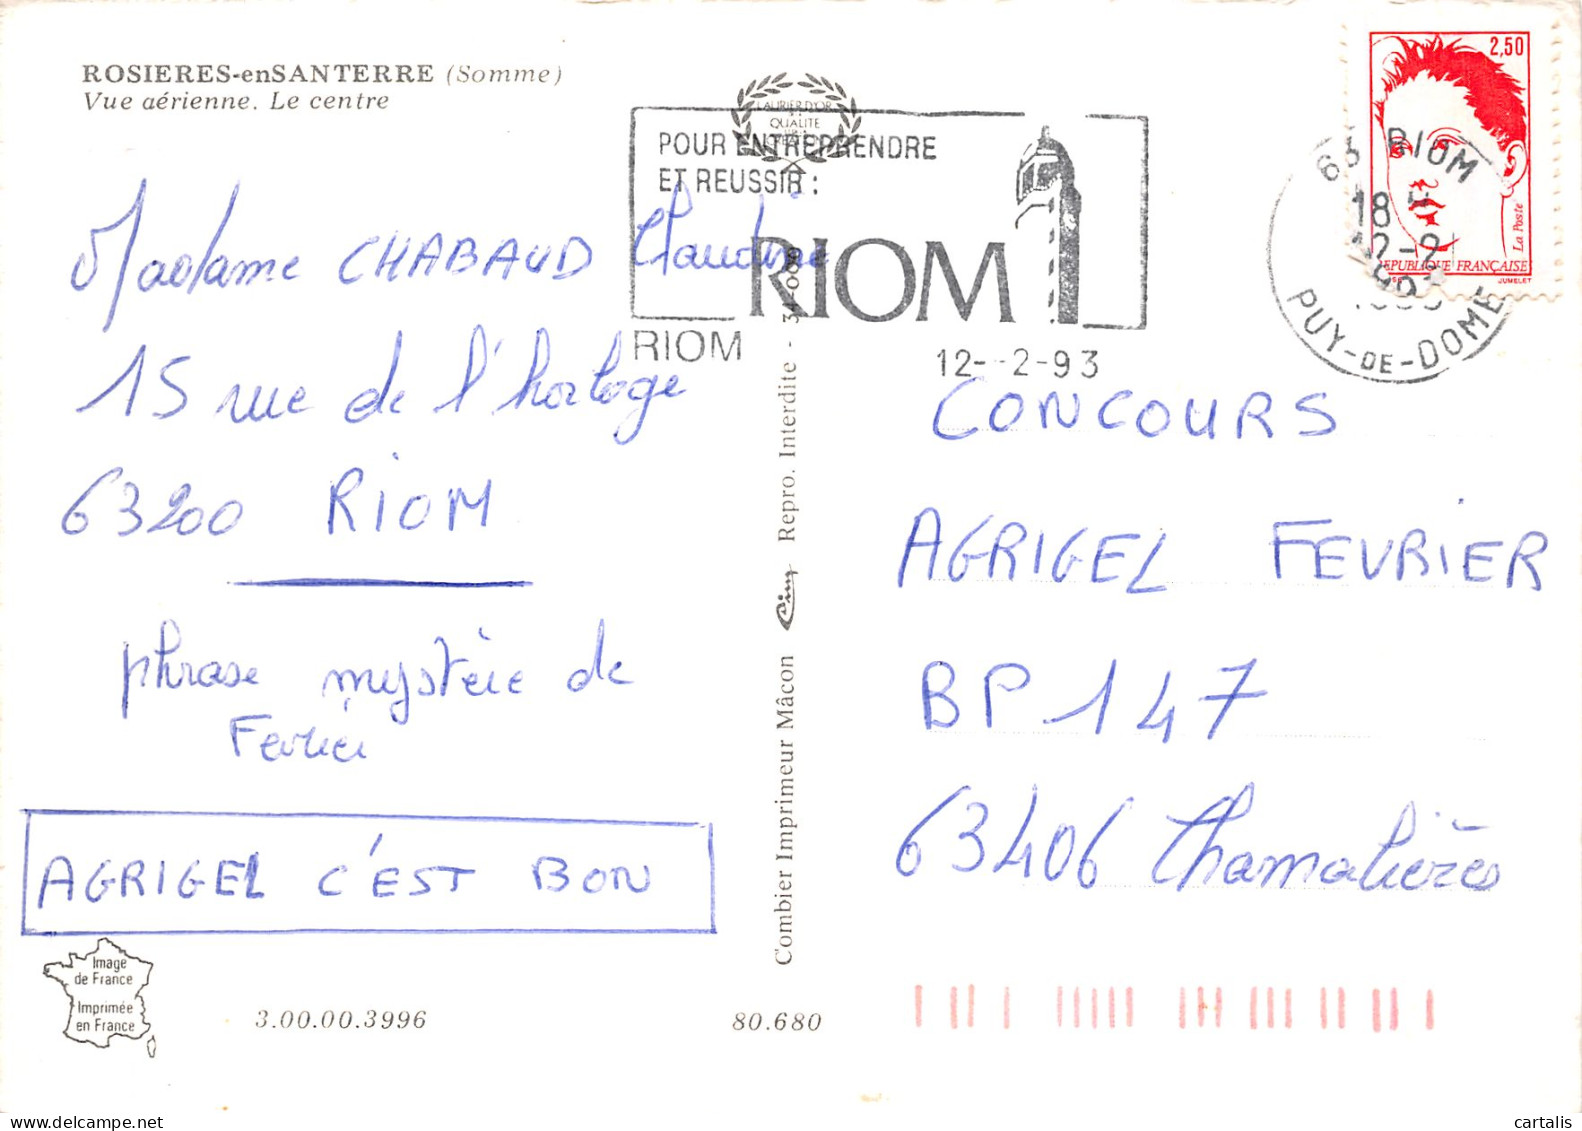 ROSIERES-enSANTERRE (Somme)
Vue aérienne. Le centre
LAURIER D'OR
QUALITE
POUR ENTREPRENDRE
ET REUSSIR :
RIOM
RIOM
12--2-93
2,50
La Poste
REPUBLIQUE FRANÇAISE
JUMELET
63 RIOM
18 H
12-2
1993
PUY-DE-DOME
Madame CHABAUD Claudine
15 rue de l'horloge
63200 RIOM
phrase mystère de
Fevrier
AGRIGEL C'EST BON
Image
de France
Imprimée
en France
3.00.00.3996
80.680
Combier Imprimeur Mâcon Cim Repro. Interdite -
CONCOURS
AGRIGEL FEVRIER
BP 147
63406 Chamalières
cartalis